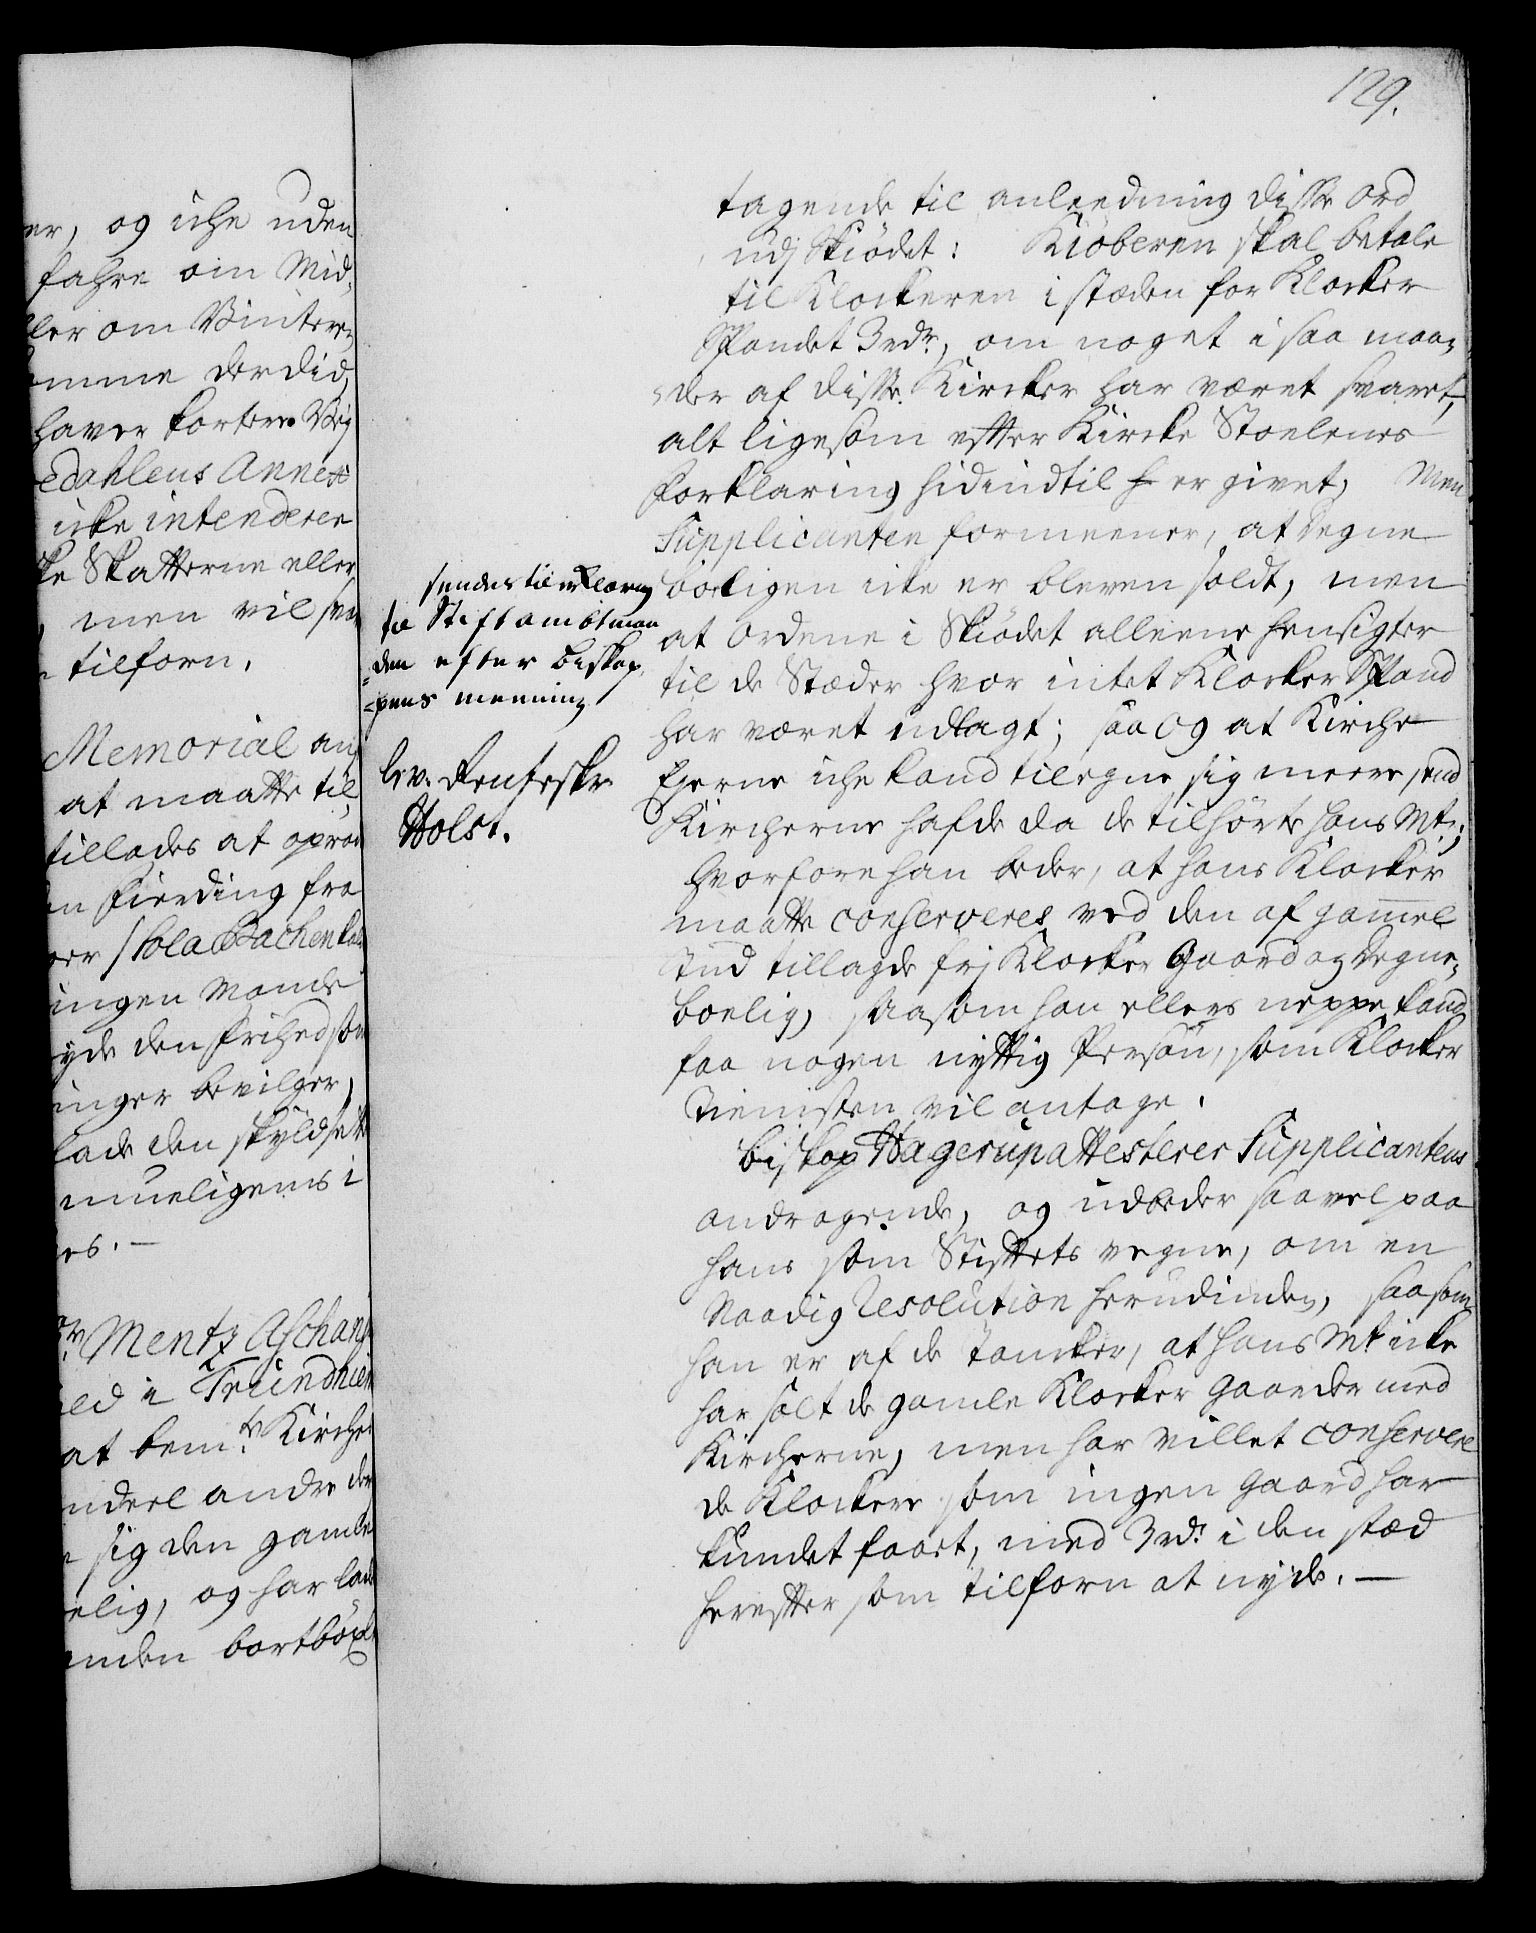 129.
er, og iche uden
fahre om Mid,
ler om Vinteren
omme der did,
haver kortere Vej
edahlens Annex
icke intenderer
ke Skatterne eller
men vil sva
tilforn.
Memorial an
at maatte til
tillades at opraa
n Fierding fra
ber Solabachen
ingen Mands
yde den frihed som
inger bevilger,
lade den skyldsætte
mueligens i
es. —
Mentz Aschan
ed i Trundhiem
at bem.te Kirche
ndeel andre der
sig den gamle
elig, og har lade
anden bortböxle
sendes til erklæring
til Stiftambtman
=den efter biskop,
=pens meening
lev. Renteskr.
Holst.
tagende til anleedning disse ord
udj Skiödet: Kiöberen skal betale
til Klockeren i stæden for Klocker
Pfandet 3 rdr, om noget i saa maa,
der af disse Kircker har været svaret,
alt ligesom efter Kircke Stoelenes
Forklaring hidindtil er givet, Men
Supplicanten formeener, at Degne
boeligen icke er bleven soldt, men
at ordene i Skiödet alleene hensigter
til de Stæder hvor intet Klocker Pfand
har været udlagt; saa og at Kirche
Ejerne iche kand tilegne sig meere end
Kircherne hafde da de tilhörte Hans Mt;
hvorfore han beder, at hans Klocker
maatte conserveres ved den af gammel
tiid tillagde frj Klocker Gaard og Degne,
boelig, saasom han ellers neppe kand
faa nogen nyttig Person, som Klocker
Tienisten vil antage.
Biskop Hagerup attesterer Supplicantens
andragende, og udbeder saavel paa
hans som Stiftets vegne, om en
Naadig Resolution herudinden, saasom
han er af de Tancker, at Hans Mt icke
har solt de gamle Klocker Gaarder med
Kircherne, men har villet conservere
de Klockere som ingen Gaard har
kundet faaet, med 3 rd i den stæd
herefter som tilforn at nyde. —